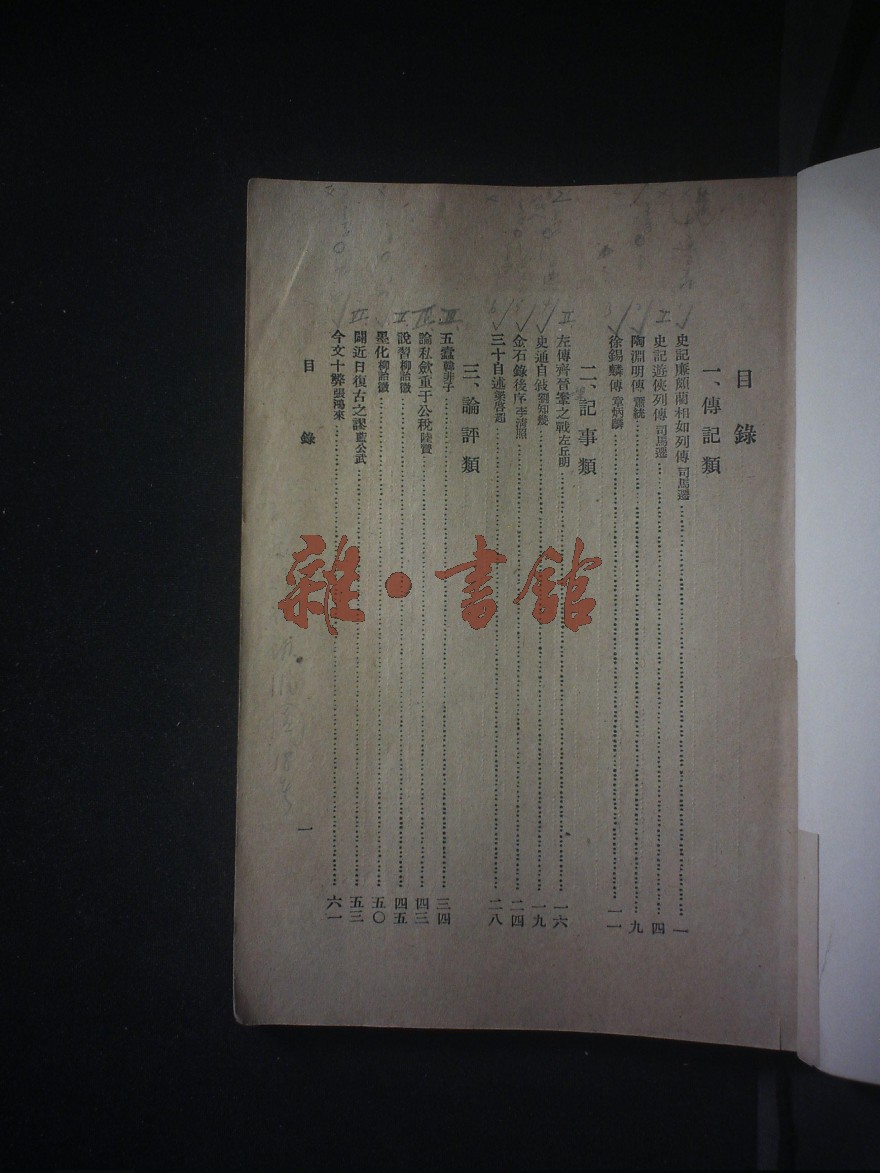 目錄
一、傳記類
史記廉頗藺相如列傳 司馬遷……一
史記遊俠列傳 司馬遷……四
陶淵明傳 蕭統……九
徐錫麟傳 章炳麟……一一
二、記事類
左傳齊晉鞌之戰 左丘明……一六
史通自敍 劉知幾……一九
金石錄後序 李清照……二四
三十自述 梁啓超……二八
三、論評類
五蠹 韓非子……三四
論私歛重于公稅 陸贄……四三
說習 柳詒徵……四五
墨化 柳詒徵……五〇
闢近日復古之謬 藍公武……五三
今文十弊 張鴻來……六一
目錄
一
雜·書館